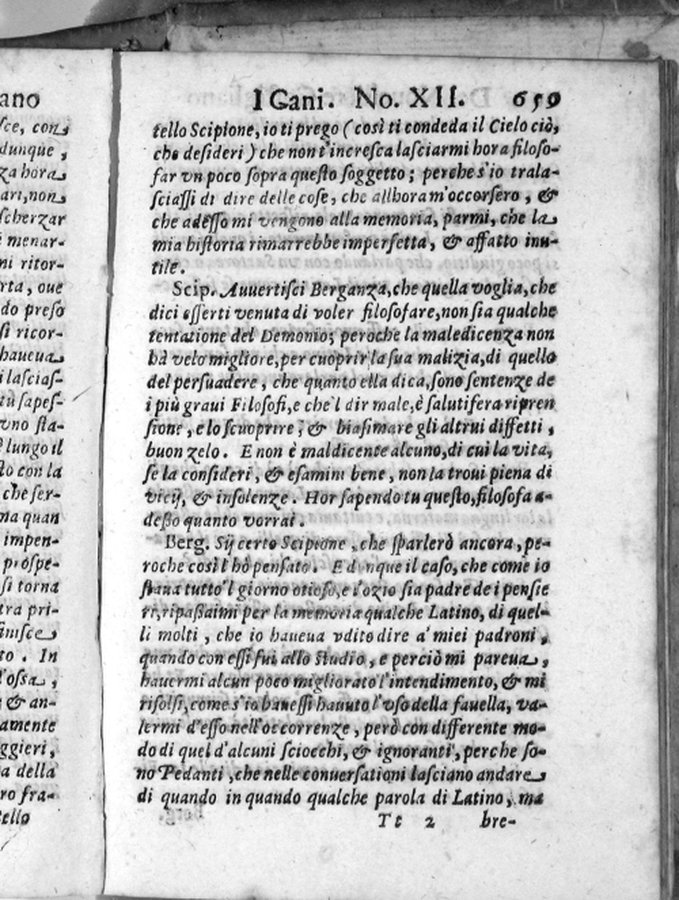 ano
sce, con
dunque,
za hora
ari, non
scherzar
i menar-
ni ritor-
rta, oue
do preso
si ricor-
haueua
i lascias-
tù sapes-
vno sta-
è lungo il
to con la
che ser-
na quan
impen-
prospe-
si torna
tra pri-
finisce
to. In
l'ossa,
& an-
amente
ggieri,
a della
ro fra-
tello
I Cani. No. XII. 659
tello Scipione, io ti prego (così ti condeda il Cielo ciò,
che desideri) che non t'incresca lasciarmi hora filoso-
far vn poco sopra questo soggetto; perche s'io trala-
sciassi di dire delle cose, che allhora m'occorsero, &
che adesso mi vengono alla memoria, parmi, che la
mia historia rimarrebbe imperfetta, & affatto inu-
tile.
Scip. Auuertisci Berganza, che quella voglia, che
dici esserti venuta di voler filosofare, non sia qualche
tentatione del Demonio; peroche la maledicenza non
hà velo migliore, per cuoprir la sua malizia, di quello
del persuadere, che quanto ella dica, sono sentenze de
i più graui Filosofi, e che'l dir male, è salutifera ripren
sione, e lo scuoprire, & biasimare gli altrui diffetti,
buon zelo. E non è maldicente alcuno, di cui la vita,
se la consideri, & esamini bene, non la troui piena di
vicij, & insolenze. Hor sapendo tu questo, filosofa a-
desso quanto vorrai.
Berg. Sij certo Scipione, che sparlerò ancora, pe-
roche così l'hò pensato. E dunque il caso, che come io
staua tutto'l giorno otioso, e l'ozio sia padre de i pensie
ri, ripassaimi per la memoria qualche Latino, di quel-
li molti, che io haueua vdito dire a' miei padroni,
quando con essi fui allo studio, e perciò mi pareua,
hauermi alcun poco migliorato l'intendimento, & mi
risolsi, come s'io hauessi hauuto l'vso della fauella, va-
lermi d'esso nell'occorrenze, però con differente mo-
do di quel d'alcuni sciocchi, & ignoranti, perche so-
no Pedanti, che nelle conuersationi lasciano andare
di quando in quando qualche parola di Latino, ma
Tt 2 bre-